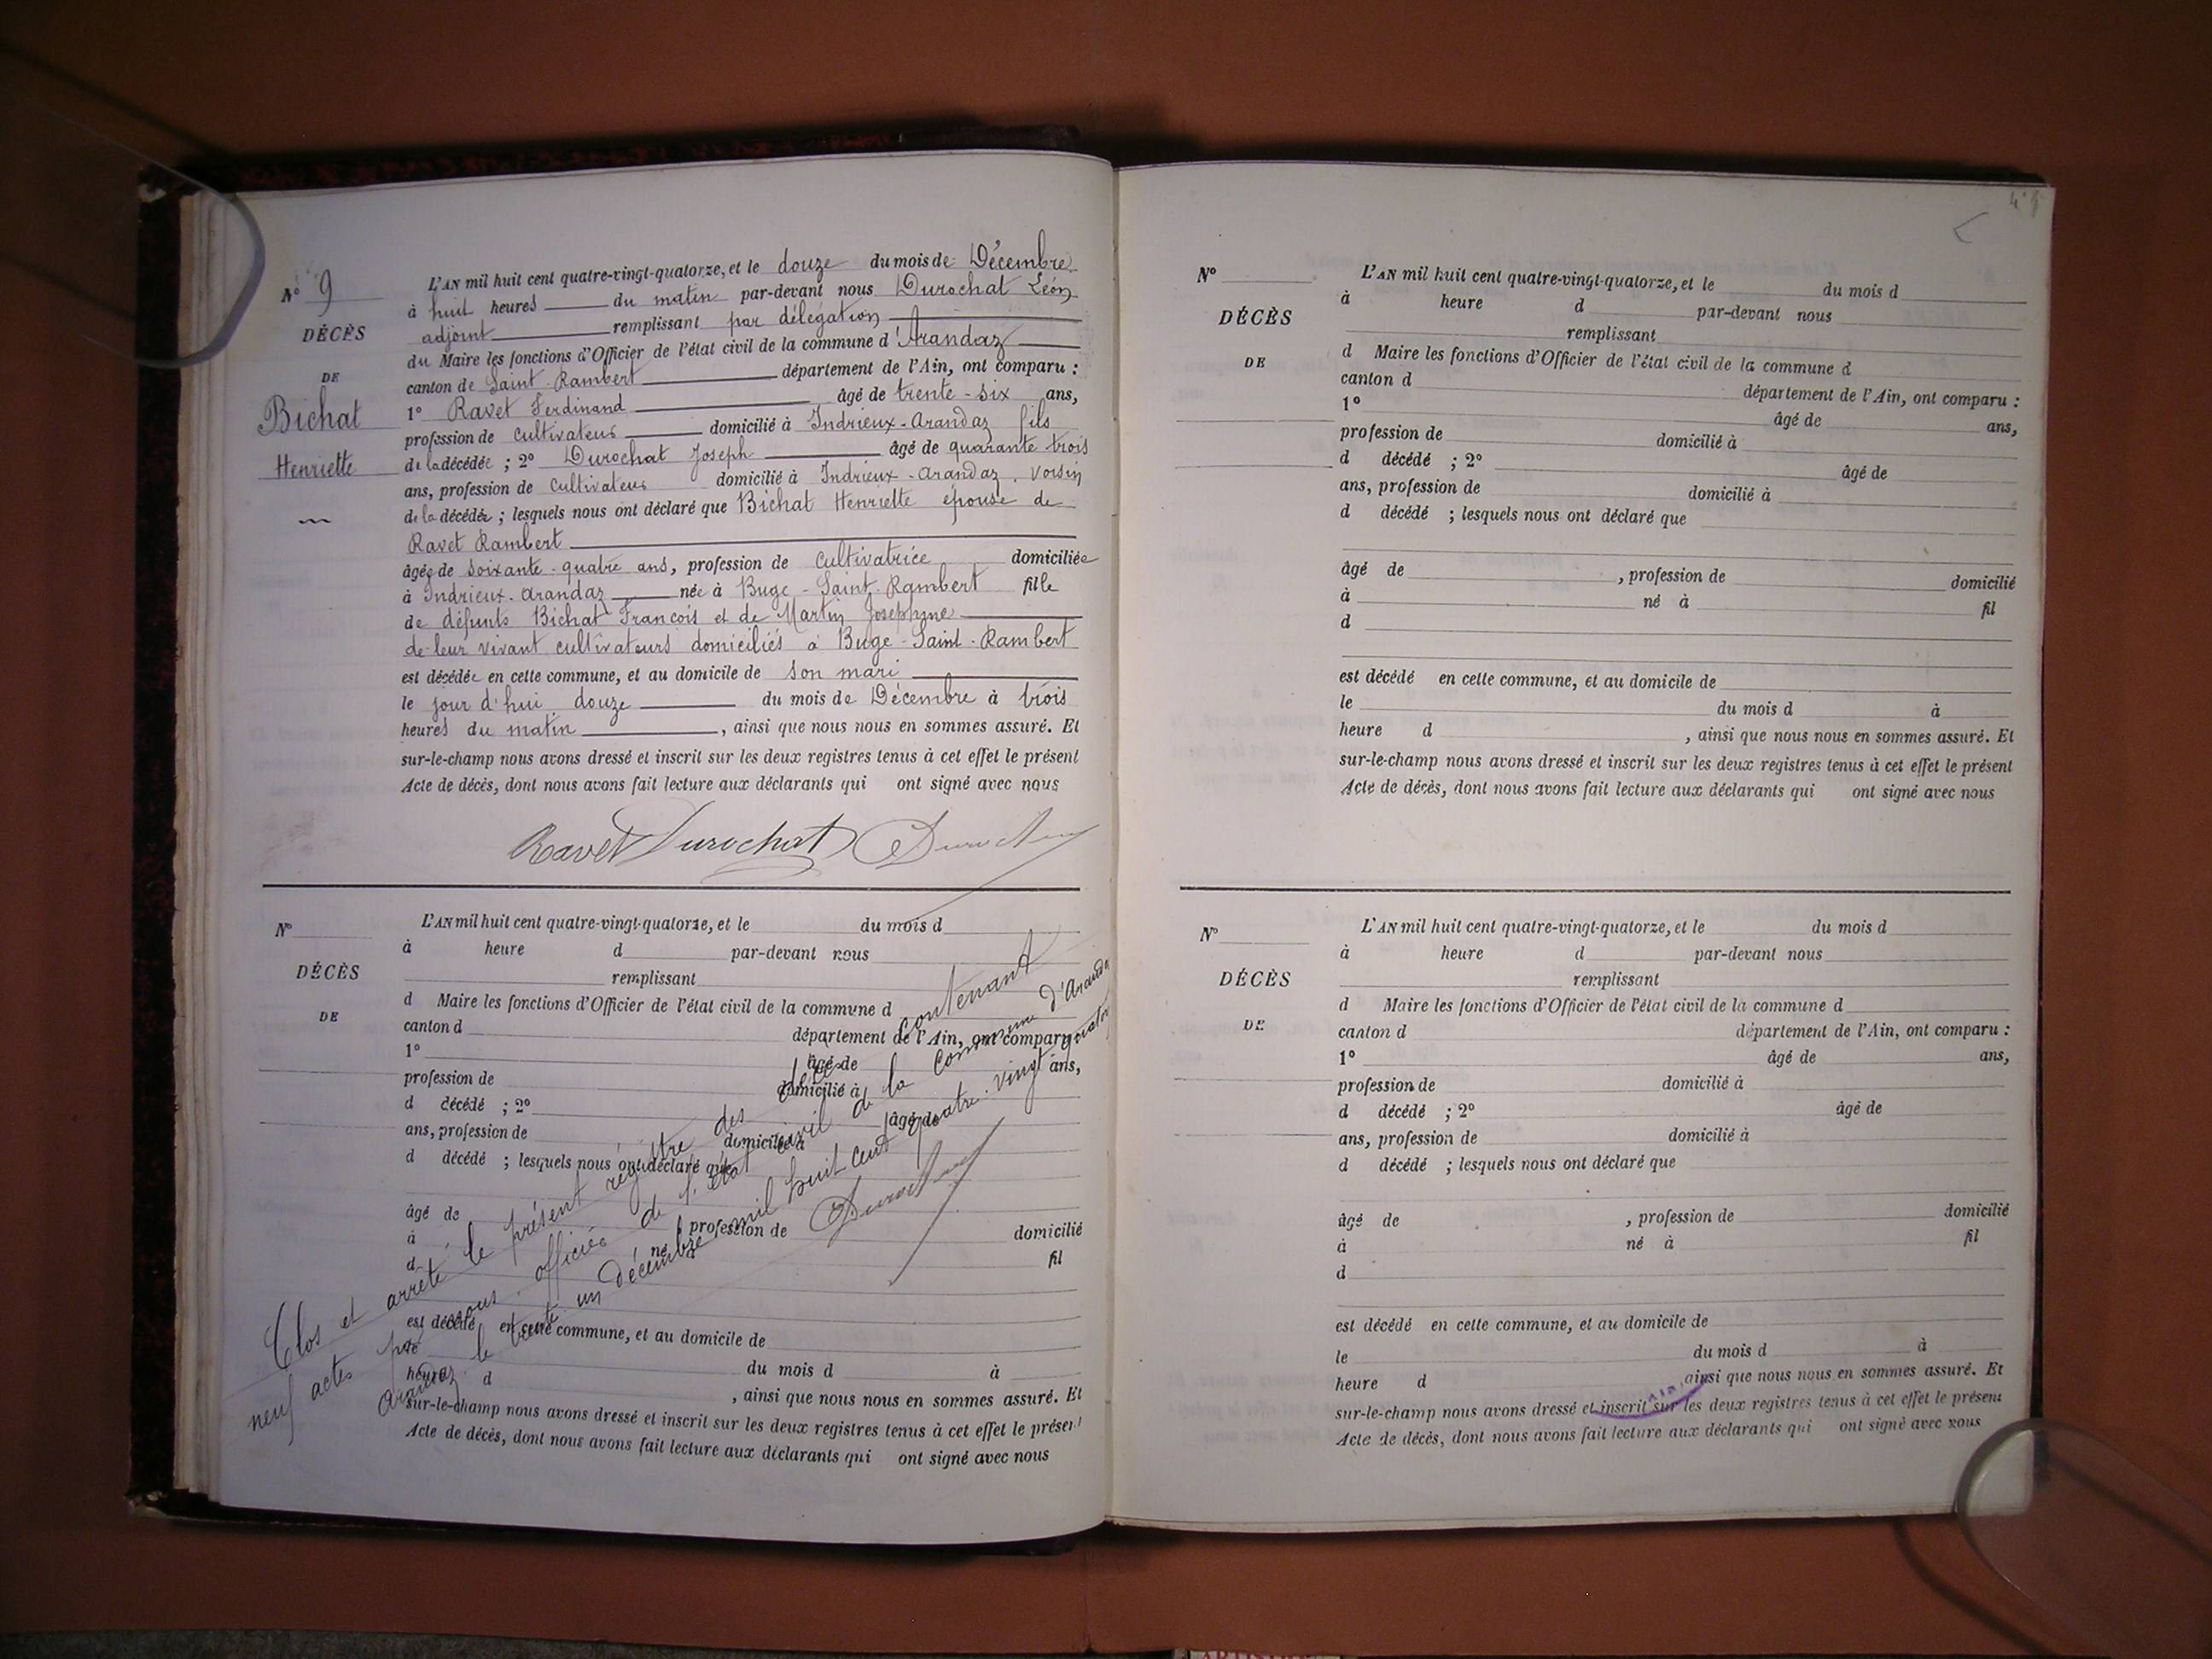 N° 9
DÉCÈS
DE
Bichat
Henriette
L'AN mil huit cent quatre-vingt-quatorze, et le douze du mois de Décembre
à huit heures du matin par-devant nous Durochat Léon
adjoint remplissant par délégation
du Maire les fonctions d'Officier de l'état civil de la commune d'Arandaz
canton de Saint-Rambert département de l'Ain, ont comparu :
1° Ravet Ferdinand âgé de trente-six ans,
profession de cultivateur domicilié à Indrieux-Arandaz fils
de la décédée ; 2° Durochat Joseph âgé de quarante trois
ans, profession de cultivateur domicilié à Indrieux-Arandaz, voisin
de la décédée ; lesquels nous ont déclaré que Bichat Henriette épouse de
Ravet Rambert
âgée de soixante-quatre ans, profession de cultivatrice domiciliée
à Indrieux-Arandaz née à Buge-Saint-Rambert fille
de défunts Bichat Francois et de Martin Josephine
de leur vivant cultivateurs domiciliés à Buge-Saint-Rambert
est décédée en cette commune, et au domicile de son mari
le jour d'hui douze du mois de Décembre à trois
heures du matin, ainsi que nous nous en sommes assuré. Et
sur-le-champ nous avons dressé et inscrit sur les deux registres tenus à cet effet le présent
Acte de décès, dont nous avons fait lecture aux déclarants qui ont signé avec nous
Ravet Durochat Durochat
N°
DÉCÈS
DE
L'AN mil huit cent quatre-vingt-quatorze, et le du mois d
à heure d par-devant nous
remplissant
d Maire les fonctions d'Officier de l'état civil de la commune d
canton d département de l'Ain, ont comparu :
1° âgé de ans,
profession de domicilié à
d décédé ; 2° âgé de
ans, profession de domicilié à
d décédé ; lesquels nous ont déclaré que
âgé de , profession de domicilié
à né à fil
d
est décédé en cette commune, et au domicile de
le du mois d à
heure d , ainsi que nous nous en sommes assuré. Et
sur-le-champ nous avons dressé et inscrit sur les deux registres tenus à cet effet le présent
Acte de décès, dont nous avons fait lecture aux déclarants qui ont signé avec nous
Clos et arrêté le présent régistre des décès contenant
neuf actes par nous officier de l'état civil de la commune d'Arandaz
Arandaz le trente un décembre mil huit cent quatre-vingt quatorze
Durochat
N°
DÉCÈS
DE
L'AN mil huit cent quatre-vingt-quatorze, et le du mois d
à heure d par-devant nous
remplissant
d Maire les fonctions d'Officier de l'état civil de la commune d
canton d département de l'Ain, ont comparu :
1° âgé de ans,
profession de domicilié à
d décédé ; 2° âgé de
ans, profession de domicilié à
d décédé ; lesquels nous ont déclaré que
âgé de , profession de domicilié
à né à fil
d
est décédé en cette commune, et au domicile de
le du mois d à
heure d , ainsi que nous nous en sommes assuré. Et
sur-le-champ nous avons dressé et inscrit sur les deux registres tenus à cet effet le présent
Acte de décès, dont nous avons fait lecture aux déclarants qui ont signé avec nous
N°
DÉCÈS
DE
L'AN mil huit cent quatre-vingt-quatorze, et le du mois d
à heure d par-devant nous
remplissant
d Maire les fonctions d'Officier de l'état civil de la commune d
canton d département de l'Ain, ont comparu :
1° âgé de ans,
profession de domicilié à
d décédé ; 2° âgé de
ans, profession de domicilié à
d décédé ; lesquels nous ont déclaré que
âgé de , profession de domicilié
à né à fil
d
est décédé en cette commune, et au domicile de
le du mois d à
heure d , ainsi que nous nous en sommes assuré. Et
sur-le-champ nous avons dressé et inscrit sur les deux registres tenus à cet effet le présent
Acte de décès, dont nous avons fait lecture aux déclarants qui ont signé avec nous